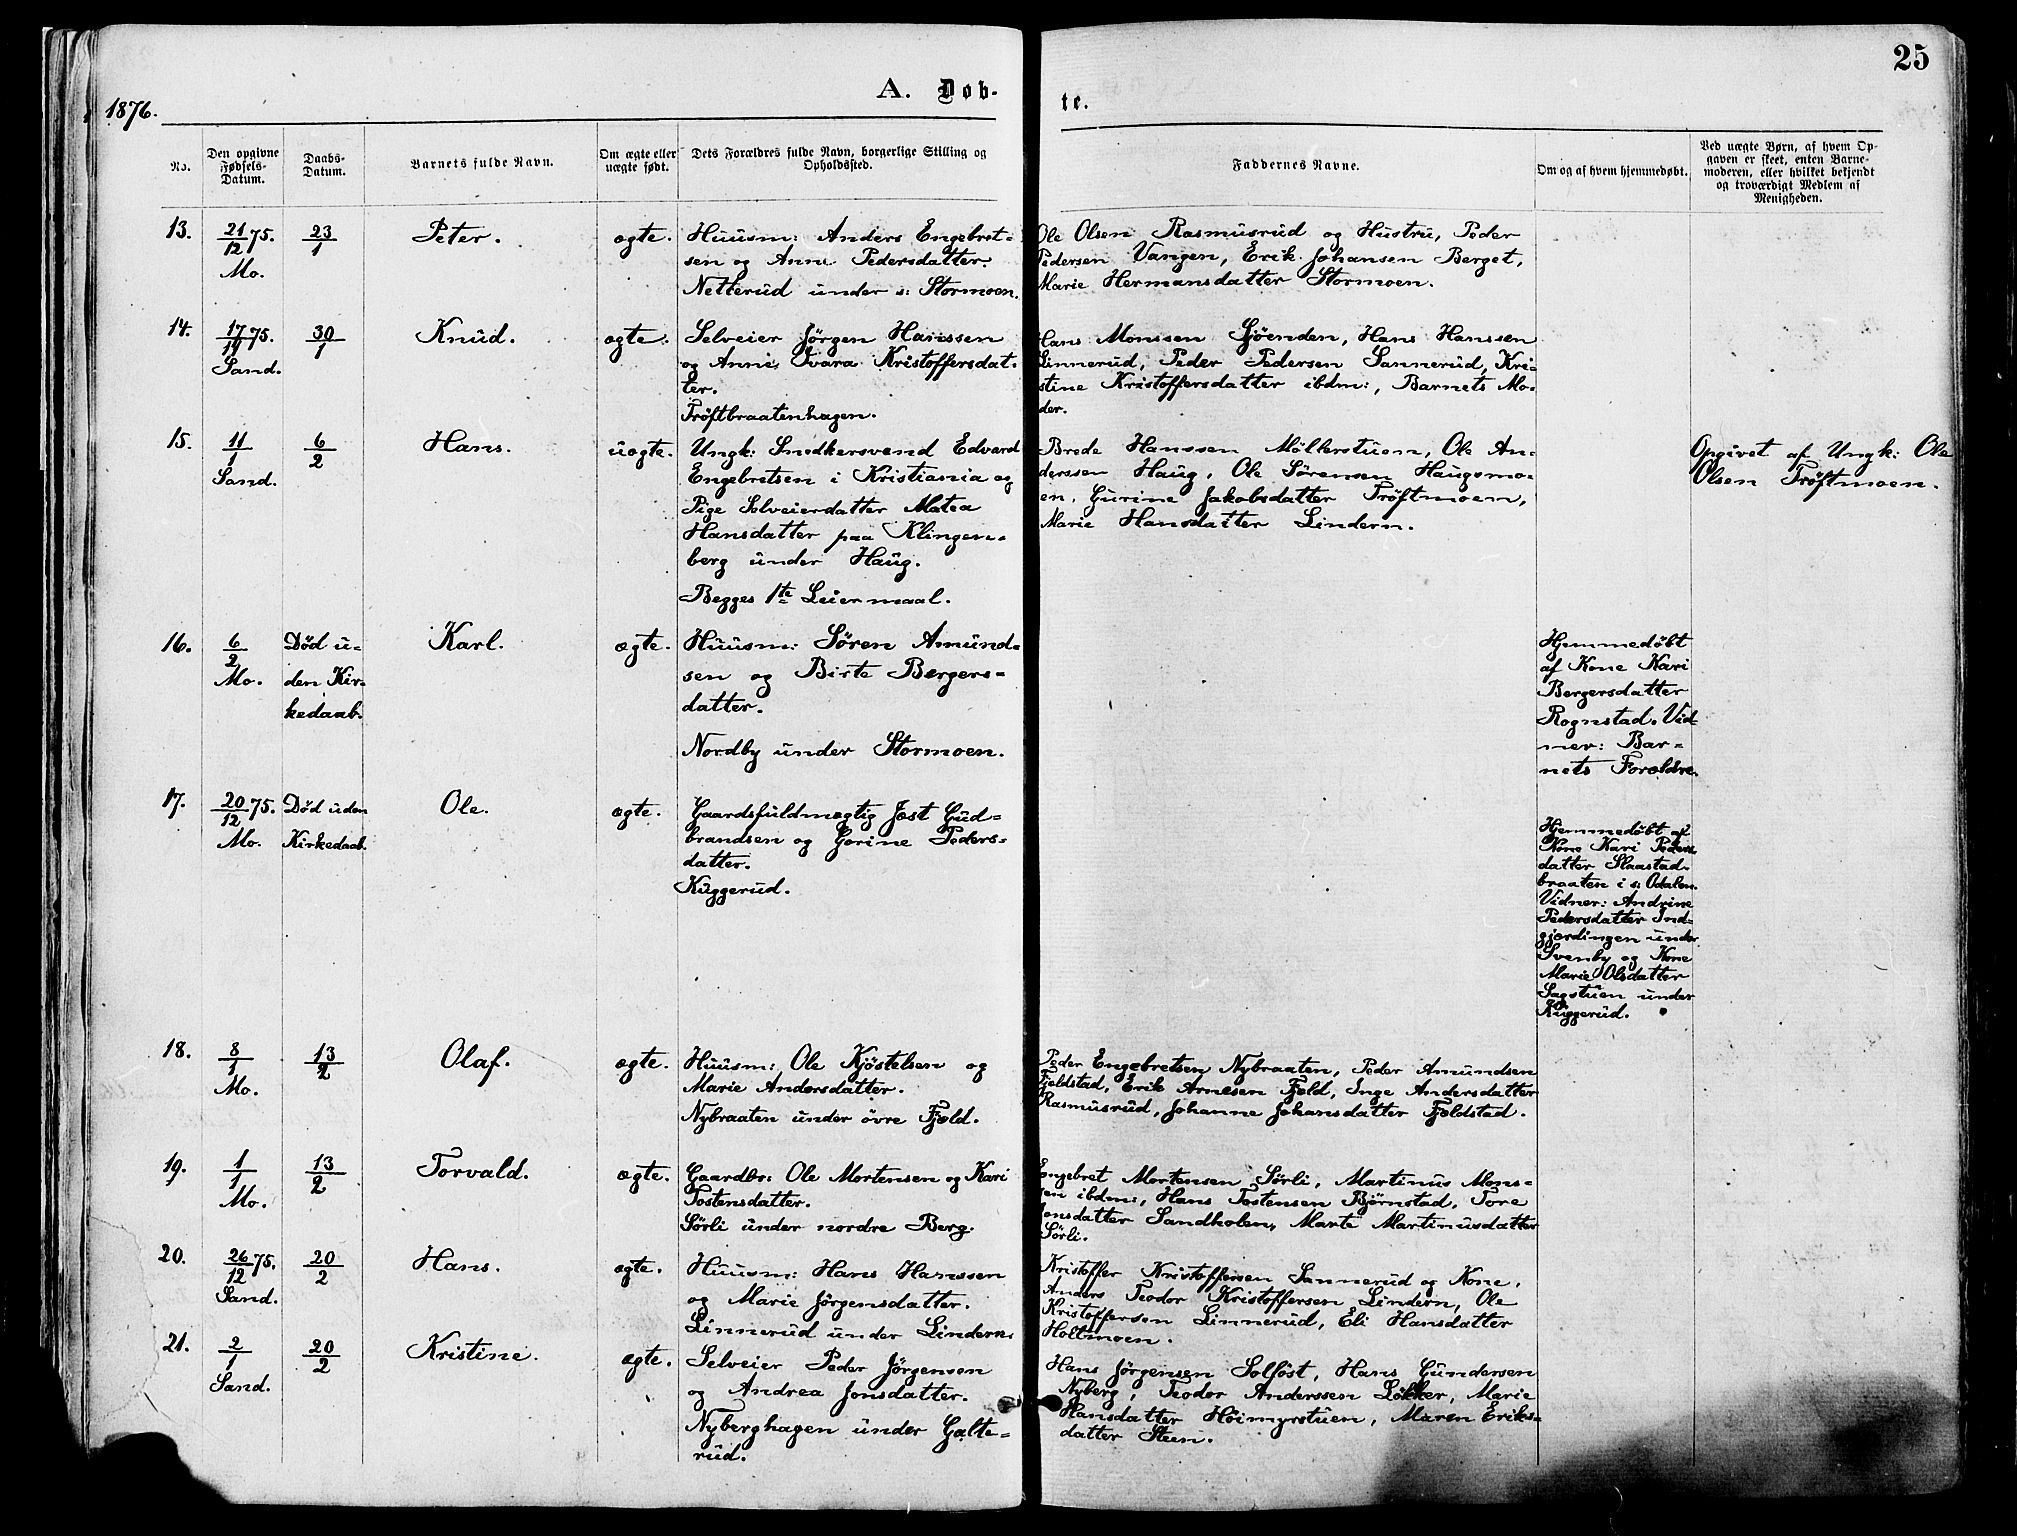 25
A. Døb-
te.
1876.
No.
Den opgivne
Fødsels-
Datum.
Daabs-
Datum.
Barnets fulde Navn.
Om ægte eller
uægte født.
Dets Forældres fulde Navn, borgerlige Stilling og
Opholdssted.
Faddernes Navne.
Om og af hvem hjemmedøbt.
Ved uægte Børn, af hvem Op-
gaven er skeet, enten Barne-
moderen, eller hvilket bekjendt
og troværdigt Medlem af
Menigheden.
13.
21/12 75.
Mo.
23/1
Peter.
ægte.
Huusm: Anders Engebret-
sen og Anne Pedersdatter.
Netterud under s: Stormoen.
Ole Olsen Rasmusrud og Hustru, Peder
Pedersen Vangen, Erik Johansen Berget,
Marie Hermansdatter Stormoen.
14.
17/ 75.
Sand.
30/1
Knud.
ægte.
Selveier Jörgen Hanssen
og Anne Kristoffersdat-
ter.
Tröftbraatenhagen.
Hans Monssen Sjöenden, Hans Hanssen
Linnerud, Peder Pedersen Sannerud, Kri-
stine Kristoffersdatter ibdm:, Barnets Mo-
der.
15.
11/1
Sand.
6/2
Hans.
uægte.
Ungk: Snedkersvend Edvard
Engebretsen i Kristiania og
Pige Selveierdatter Matea
Hansdatter paa Klingen-
berg under Haug.
Begges 1te Leiermaal.
Brede Hanssen Möllerstuen, Ole An-
derssen Haug, Ole Sörensen Haugsmo-
en, Gurine Jakobsdatter Tröftmoen,
Marie Hansdatter Lindern.
Opgivet af Ungk: Ole
Olsen Tröftmoen.
16.
6/2
Mo.
Död u-
den Kir-
kedaab.
Karl.
ægte.
Huusm: Sören Amund-
sen og Birte Bergers-
datter.
Nordby under Stormoen.
Hjemmedöbt
af Kone Kari
Bergersdatter
Rognstad. Vid-
ner: Bar-
nets Forældre.
17.
20/12 75.
Mo.
Död uden
Kirkedaab.
Ole.
ægte.
Gaardsfuldmægtig Jost Gud-
brandsen og Gorine Peders-
datter.
Kuggerud.
Hjemmedöbt af
Kone Kari Peders
datter Slaastad-
braaten i s: Odalen.
Vidner: Andrine
Pedersdatter Ind-
gjærdingen under
Svenby og Kone
Marie Olsdatter
Sagstuen under
Kuggerud.
18.
8/1
Mo.
13/2
Olaf.
ægte.
Huusm: Ole Kjöstelsen og
Marie Andersdatter.
Nybraaten under övre Fjeld.
Peder Engebretsen Nybraaten, Peder Amundsen
Fjeldstad, Erik Arnesen Fjeld, Inge Andersdatter
Rasmusrud, Johanne Johansdatter Fjeldstad.
19.
1/1
Mo.
13/2
Torvald.
ægte.
Gaardbr: Ole Mortensen og Kari
Tostensdatter.
Sörli under nordre Berg.
Engebret Mortensen Sörli, Martinus Mons-
sen ibdm:, Hans Tostensen Björnstad, Tore
Jonsdatter Sandholen, Marte Martinusdatter
Sörli.
20.
26/12 75.
Sand.
20/2
Hans.
ægte.
Huusm: Hans Hanssen
og Marie Jörgensdatter.
Linnerud under Lindern.
Kristoffer Kristoffersen Sannerud og Kone,
Anders Teodor Kristoffersen Lindern, Ole
Kristoffersen Linnerud, Eli Hansdatter
Holtmoen.
21.
2/1
Sand.
20/2
Kristine.
ægte.
Selveier Peder Jörgensen
og Andrea Jonsdatter.
Nyberghagen under Galte-
rud.
Hans Jörgensen Solföst, Hans Gundersen
Nyberg, Teodor Anderssen Lökker, Marie
Hansdatter Höimyrstuen, Maren Eriks-
datter Steen.